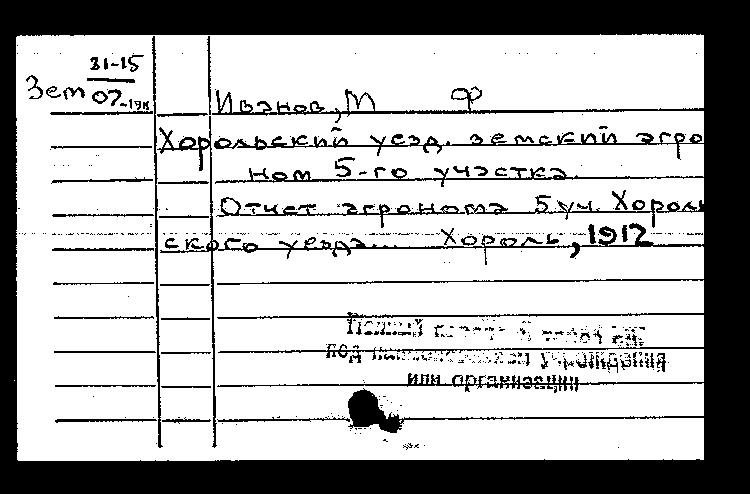 31-15
Зем 07-19к
Иванов, М Ф
Хорольский уезд. земский агро
ном 5-го участка.
Отчет агронома 5 уч. Хороль
ского уезда... Хороль, 1912
Полный
под учреждения
или организации